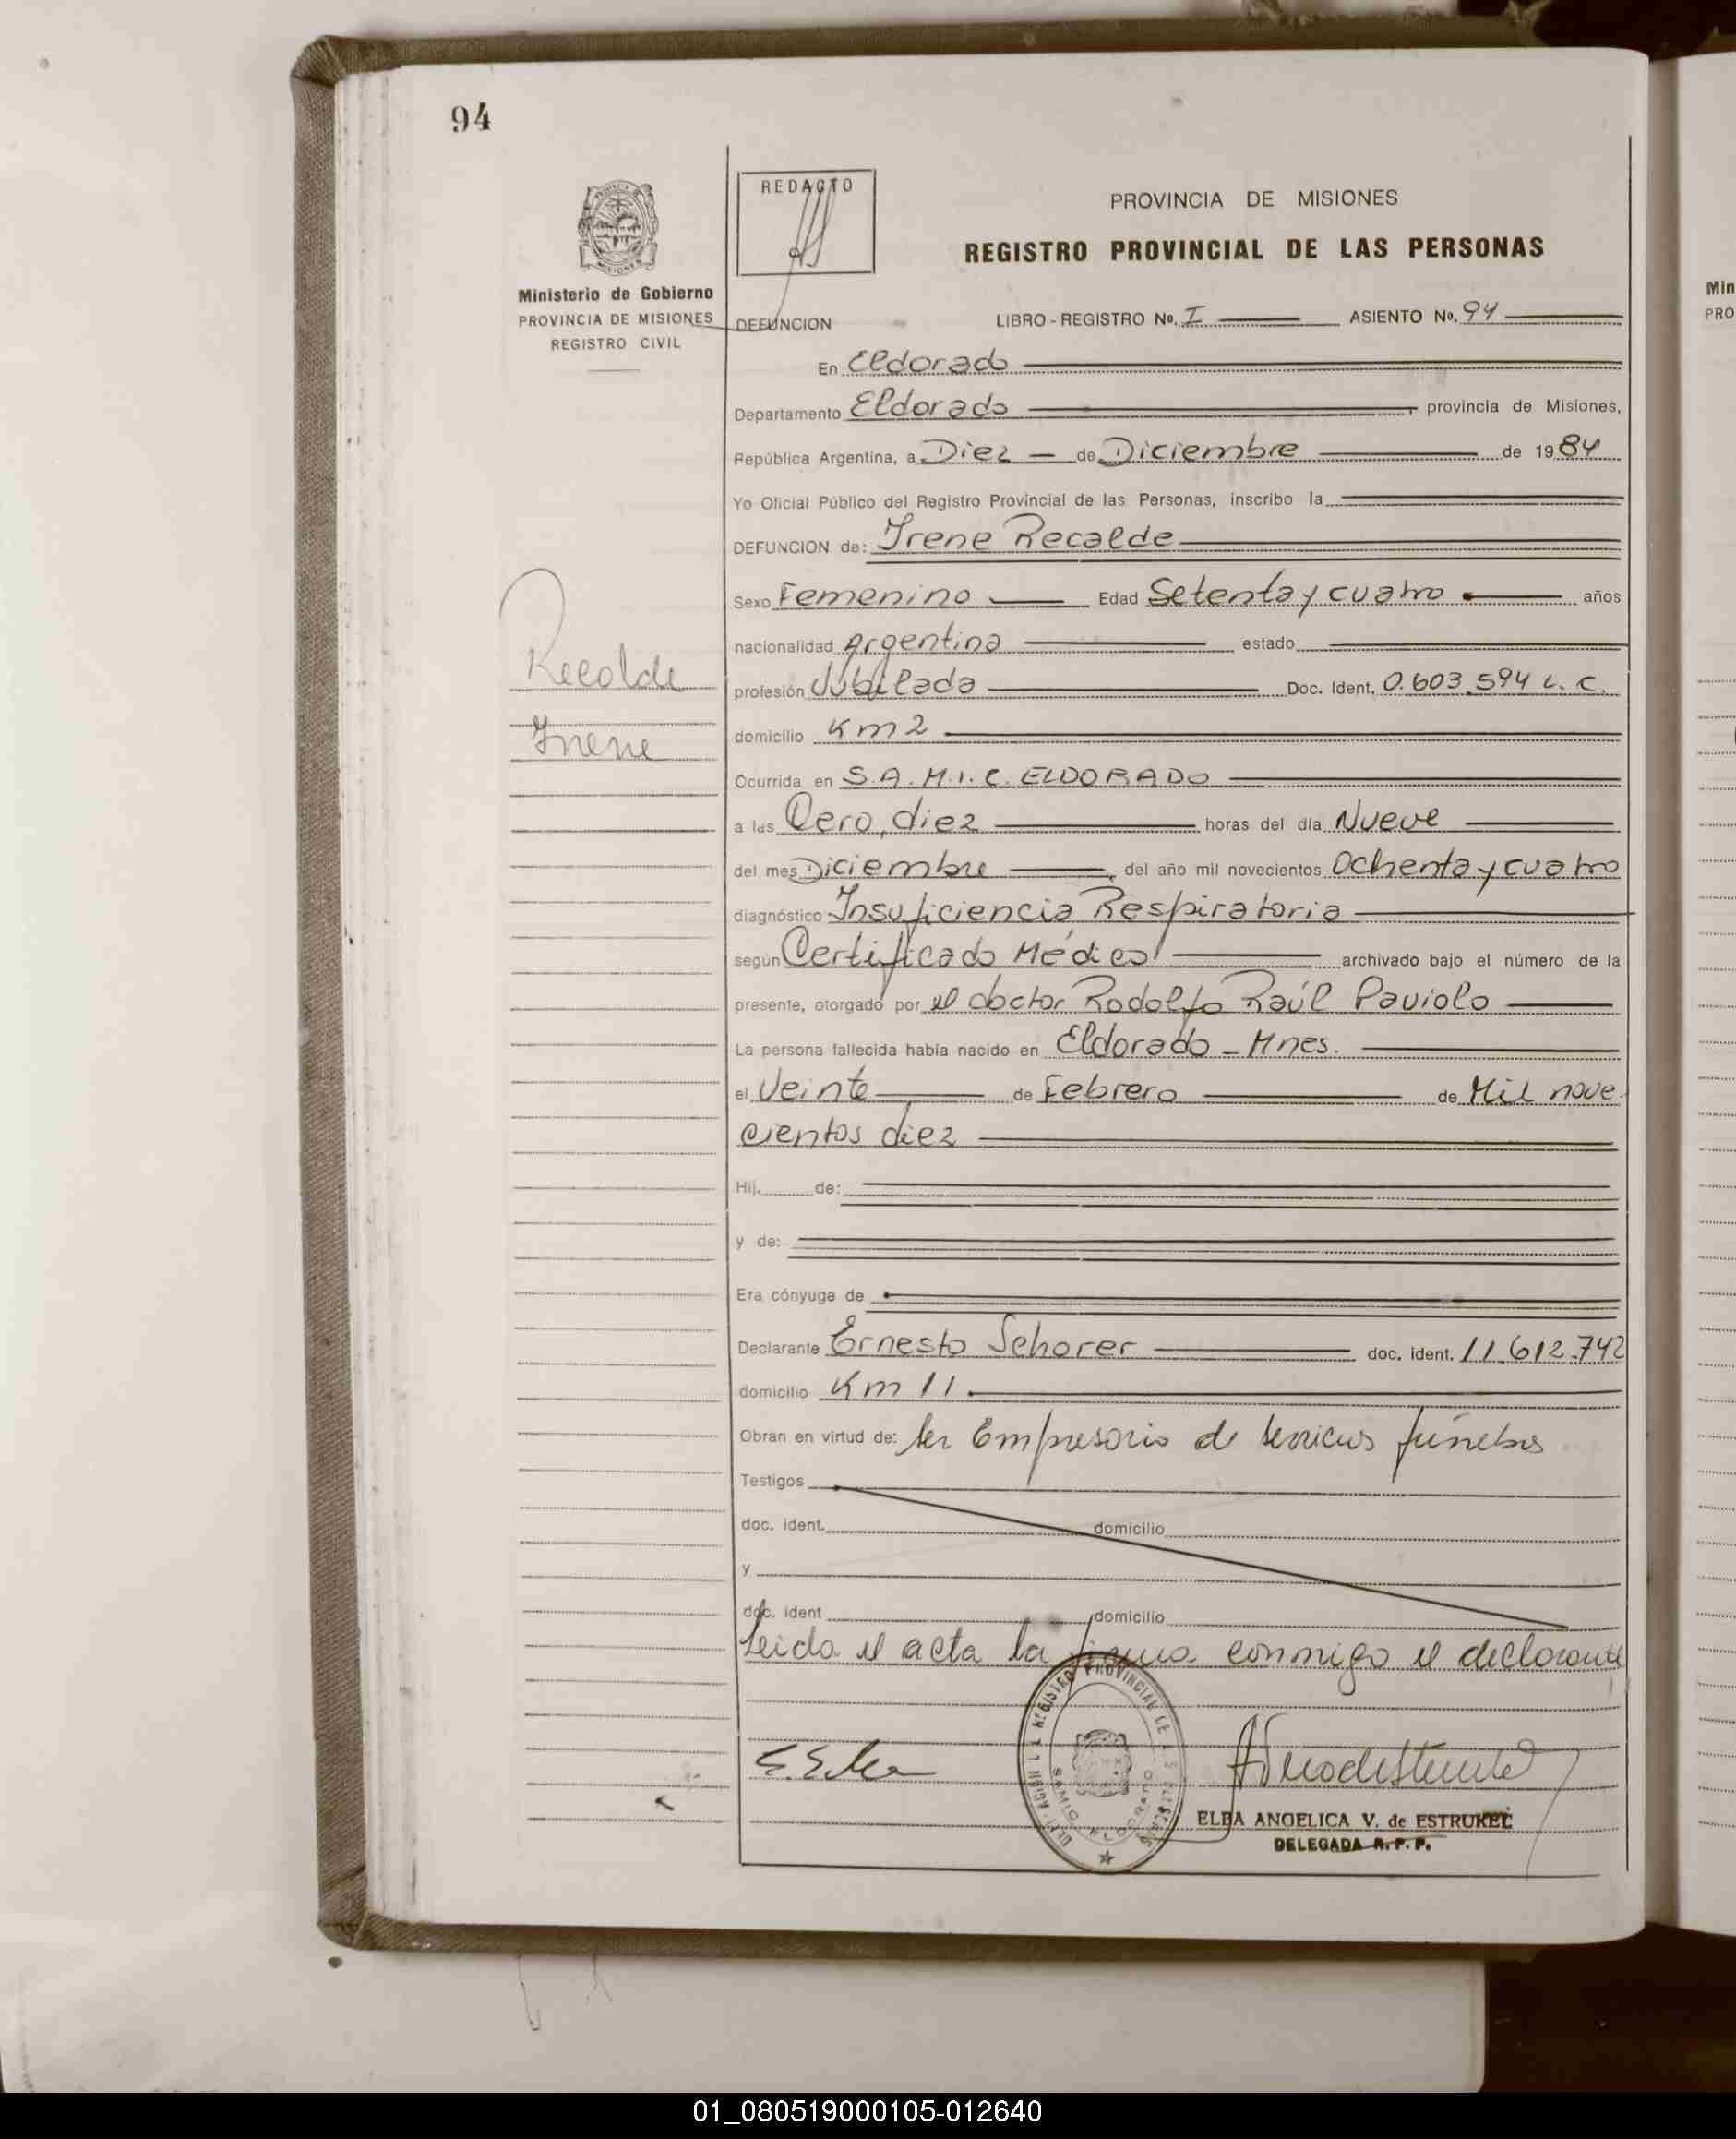 94
REDACTO
PROVINCIA DE MISIONES
REGISTRO PROVINCIAL DE LAS PERSONAS
Ministerio de Gobierno
PROVINCIA DE MISIONES
REGISTRO CIVIL
DEFUNCION LIBRO - REGISTRO No. I ASIENTO No. 94
En Eldorado
Departamento Eldorado, provincia de Misiones,
República Argentina, a Diez de Diciembre de 1984
Yo Oficial Público del Registro Provincial de las Personas, inscribo la
DEFUNCION de: Irene Recalde
Sexo Femenino Edad Setenta y cuatro años
nacionalidad Argentina estado
Recalde
profesión Jubilada Doc. Ident. 0.603.594 L.C.
Irene
domicilio Km 2
Ocurrida en S.A.M.I.C. ELDORADO
a las Cero, diez horas del día Nueve
del mes Diciembre, del año mil novecientos Ochenta y cuatro
diagnóstico Insuficiencia Respiratoria
según Certificado Médico archivado bajo el número de la
presente, otorgado por el doctor Rodolfo Raúl Paviolo
La persona fallecida había nacido en Eldorado - Mnes.
el Veinte de Febrero de Mil nove
cientos diez
Hij de:
y de:
Era cónyuge de
Declarante Ernesto Schorer doc. ident. 11.612.742
domicilio Km 11
Obran en virtud de: ser Empresario de servicios fúnebres
Testigos
doc. ident. domicilio
y
doc. ident domicilio
Leida el acta la firma conmigo el declarante
REGISTRO PROVINCIAL DE
SAMIC ELDORADO
ELBA ANGELICA V. de ESTRUKEL
DELEGADA R. P. P.
Min
PRO
01_080519000105-012640